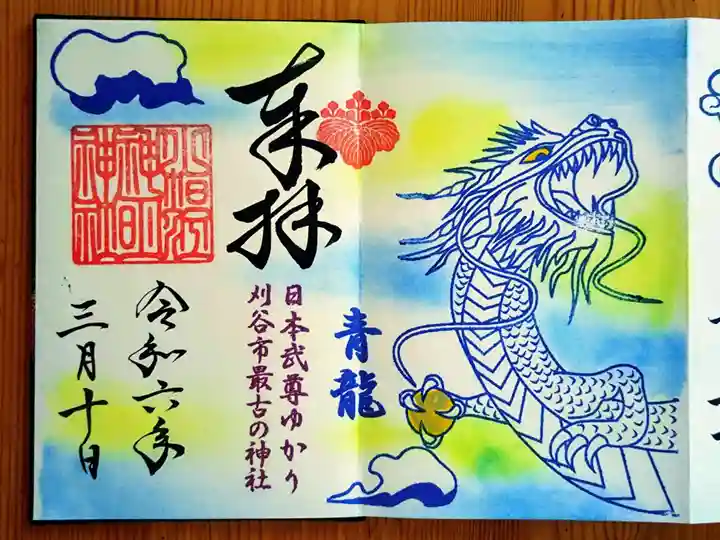 青龍
奉拝
日本武尊ゆかり
刈谷市最古の神社
令和六年
三月十日